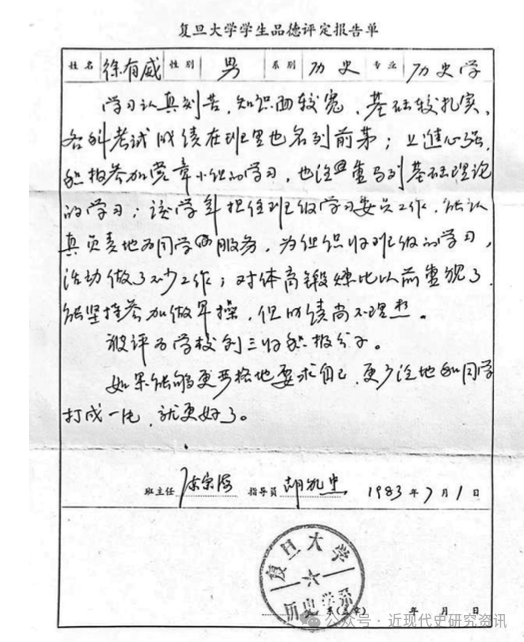 复旦大学学生品德评定报告单
姓名 徐有威 性别 男 系别 历史 专业 历史学
学习认真刻苦，知识面较宽，基础较扎实，
各科考试成绩在班里也名列前茅；上进心强，
积极参加党章小组的学习，也注重马列基础理论
的学习；该学年担任班级学习委员工作，能认
真负责地为同学服务，为组织好班级的学习，
活动做了不少工作；对体育锻炼比以前重视了，
能坚持参加做早操，但成绩尚不理想。
被评为学校到三好积极分子。
如果能够更严格地要求自己，更多注地和同学
打成一片，就更好了。
班主任 指导员 1983年7月1日
复旦大学
历史学系
年 月 日
公众号·近现代史研究资讯